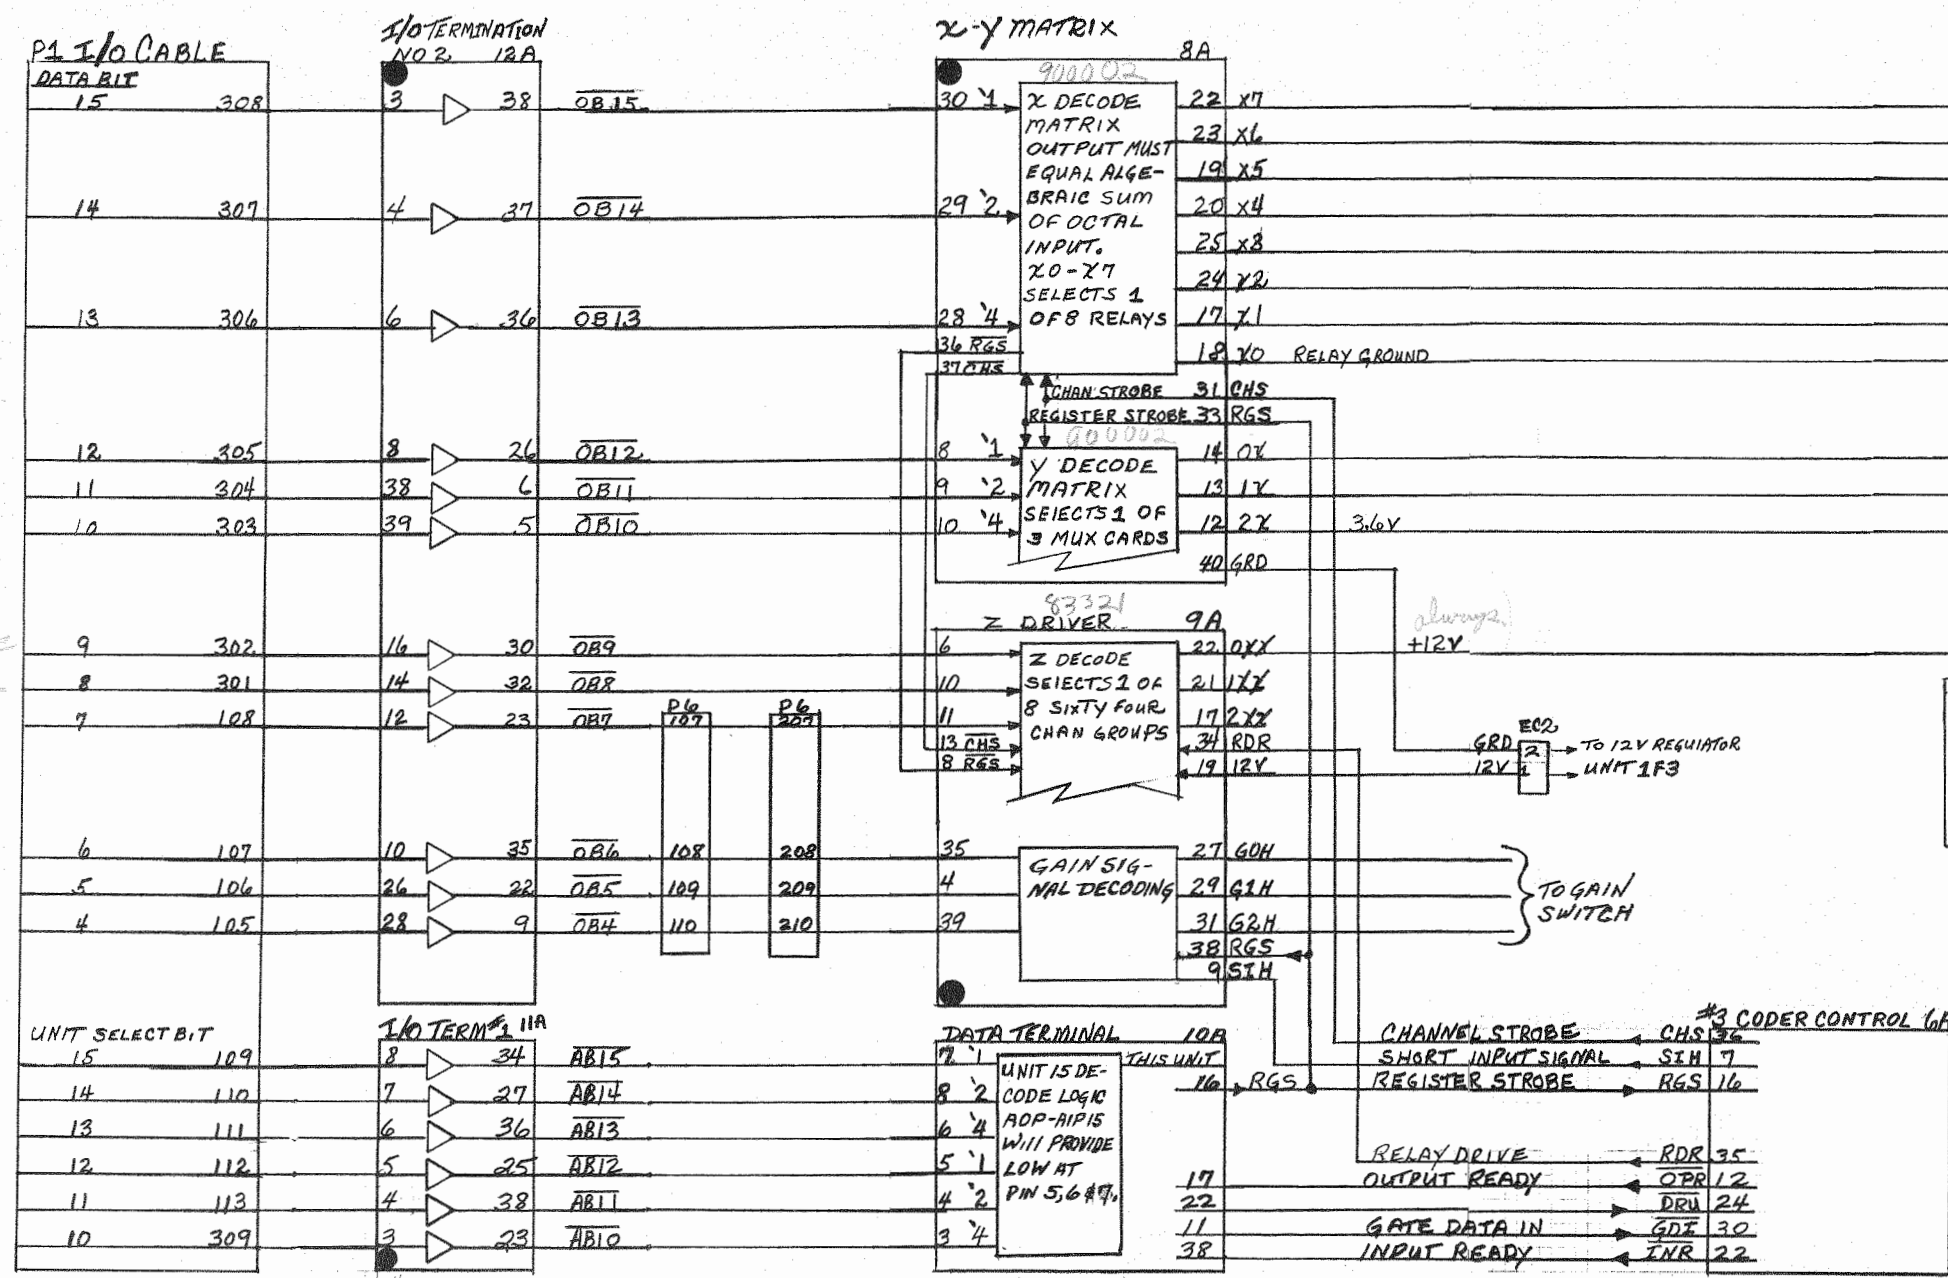 P1 I/O CABLE
DATA BIT
15 308
14 307
13 306
12 305
11 304
10 303
9 302
8 301
7 108
6 107
5 106
4 105
UNIT SELECT BIT
15 109
14 110
13 111
12 112
11 113
10 309
I/O TERMINATION
NO 2 12A
3 38 OB15
4 37 OB14
6 36 OB13
8 26 OB12
38 6 OB11
39 5 OB10
16 30 OB9
14 32 OB8
12 23 OB7
10 35 OB6
26 22 OB5
28 9 OB4
P6
107
108
109
110
P6
207
208
209
210
I/O TERM #1 11A
8 34 AB15
7 27 AB14
6 36 AB13
5 25 AB12
4 38 AB11
3 23 AB10
X-Y MATRIX
8A
900002
30 '1
29 '2
28 '4
36 RGS
37 CHS
X DECODE
MATRIX
OUTPUT MUST
EQUAL ALGE-
BRAIC SUM
OF OCTAL
INPUT.
X0-X7
SELECTS 1
OF 8 RELAYS
22 X7
23 X6
19 X5
20 X4
25 X3
24 X2
17 X1
18 X0 RELAY GROUND
CHAN STROBE 31 CHS
REGISTER STROBE 33 RGS
900002
8 '1
9 '2
10 '4
Y DECODE
MATRIX
SELECTS 1 OF
3 MUX CARDS
14 0X
13 1X
12 2X 3.6V
40 GRD
83321
Z DRIVER 9A
6
10
11
13 CHS
8 RGS
Z DECODE
SELECTS 1 OF
8 SIXTY FOUR
CHAN GROUPS
22 0XX
21 1XX
17 2XX
34 RDR
19 12V
always
+12V
EC2
GRD 2 TO 12V REGULATOR
12V 1 UNIT 1F3
35
4
39
GAIN SIG-
NAL DECODING
27 G0H
29 G1H
31 G2H
38 RGS
9 SIH
TO GAIN
SWITCH
DATA TERMINAL 10A
7 '1
8 '2
6 '4
5 '1
4 '2
3 '4
UNIT 15 DE-
CODE LOGIC
AOP-AIP15
WILL PROVIDE
LOW AT
PIN 5,6 & 7.
THIS UNIT
16 RGS
17
22
11
38
#3 CODER CONTROL
CHANNEL STROBE CHS 36
SHORT INPUT SIGNAL SIH 7
REGISTER STROBE RGS 16
RELAY DRIVE RDR 35
OUTPUT READY OPR 12
DRU 24
GATE DATA IN GDI 30
INPUT READY INR 22